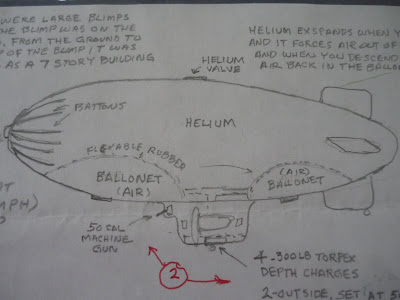 WERE LARGE BLIMPS
BLIMP WAS ON THE
FROM THE GROUND TO
OF THE BLIMP IT WAS
AS A 7 STORY BUILDING
HELIUM EXSPANDS WHEN
AND IT FORCES AIR OUT OF
AND WHEN YOU DESCEND
AIR BACK IN THE
HELIUM
VALVE
BATTONS
HELIUM
FLEXABLE RUBBER
BALLONET
(AIR)
(AIR)
BALLONET
50 CAL
MACHINE
GUN
2
4-300LB TORPEX
DEPTH CHARGES
2-OUTSIDE, SET AT